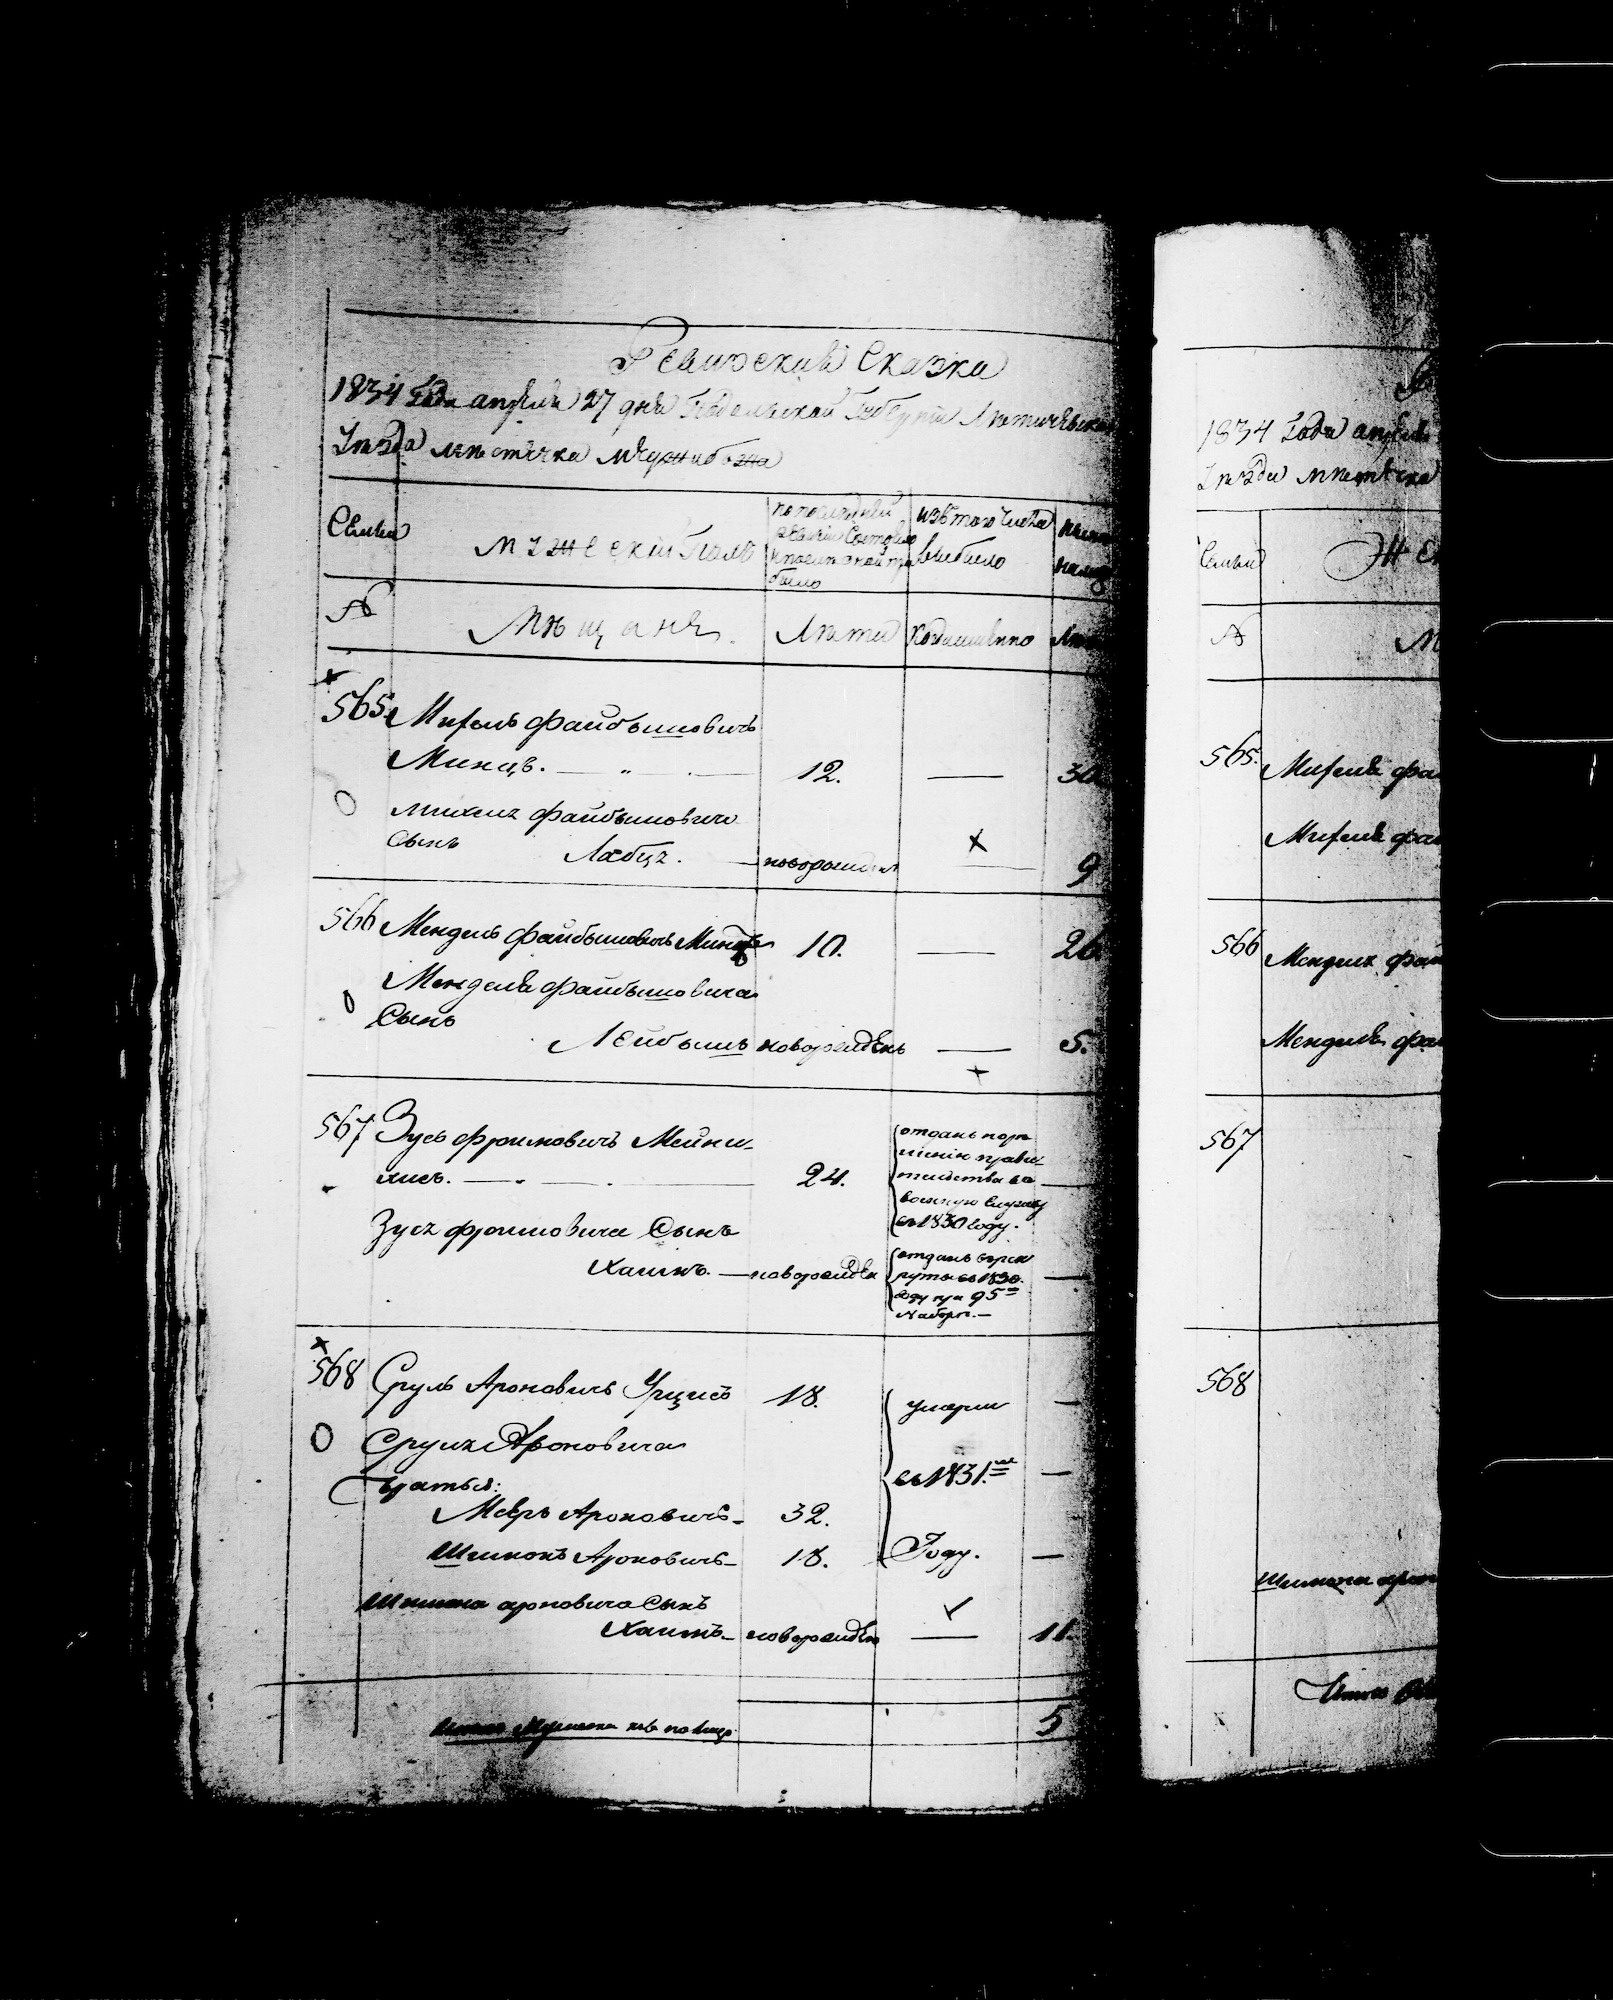 Ревизская Сказка
1834 Года апреля 27 дня Подольской Губернии Летичевска
Уезда местечка Меджибожа
Семьи
Мужеский Полъ
по последней
ревизіи Состояло
и после оной при
было
изъ того числа
выбыло
№
Мещане.
Лета
Когда именно
Ле
565.
Михель Файбышовичъ
Минцъ. — „ . —
12.
—
30
Михеля Файбышовича
Сынъ Лабця. —
новорожден
—
9
566
Мендель Файбышовичъ Минцъ
10.
—
26
Менделя Файбышовича
Сынъ
Лейбышъ
новорожденъ
—
5.
567
Зусь Фроимовичъ Мейни-
лисъ. —
24.
отданъ поръ
шенію прави-
тельства въ
военную службу
въ 1830 году.
—
Зуся Фроимовича Сынъ
Хаимъ. —
новорожден
отданъ въ рек
руты въ 1830.
году при 95м
наборе. —
—
568
Сруль Ароновичъ Урцисъ
18.
умерли
—
Сруля Ароновича
братья:
въ 1831.м
—
Мееръ Ароновичъ-
32.
Шимонъ Ароновичъ-
18.
Году.
—
Шимона ароновича Сынъ
Хаимъ. —
новорожден
—
11.
Итого Мужеска на лицо
5
1834 Года апреля
Уезда местечка
Семьи
Же
№
М
565.
Михеля фа
Михеля фа
566
Менделя фай
Менделя фа
567
568
Шимона арон
Итого